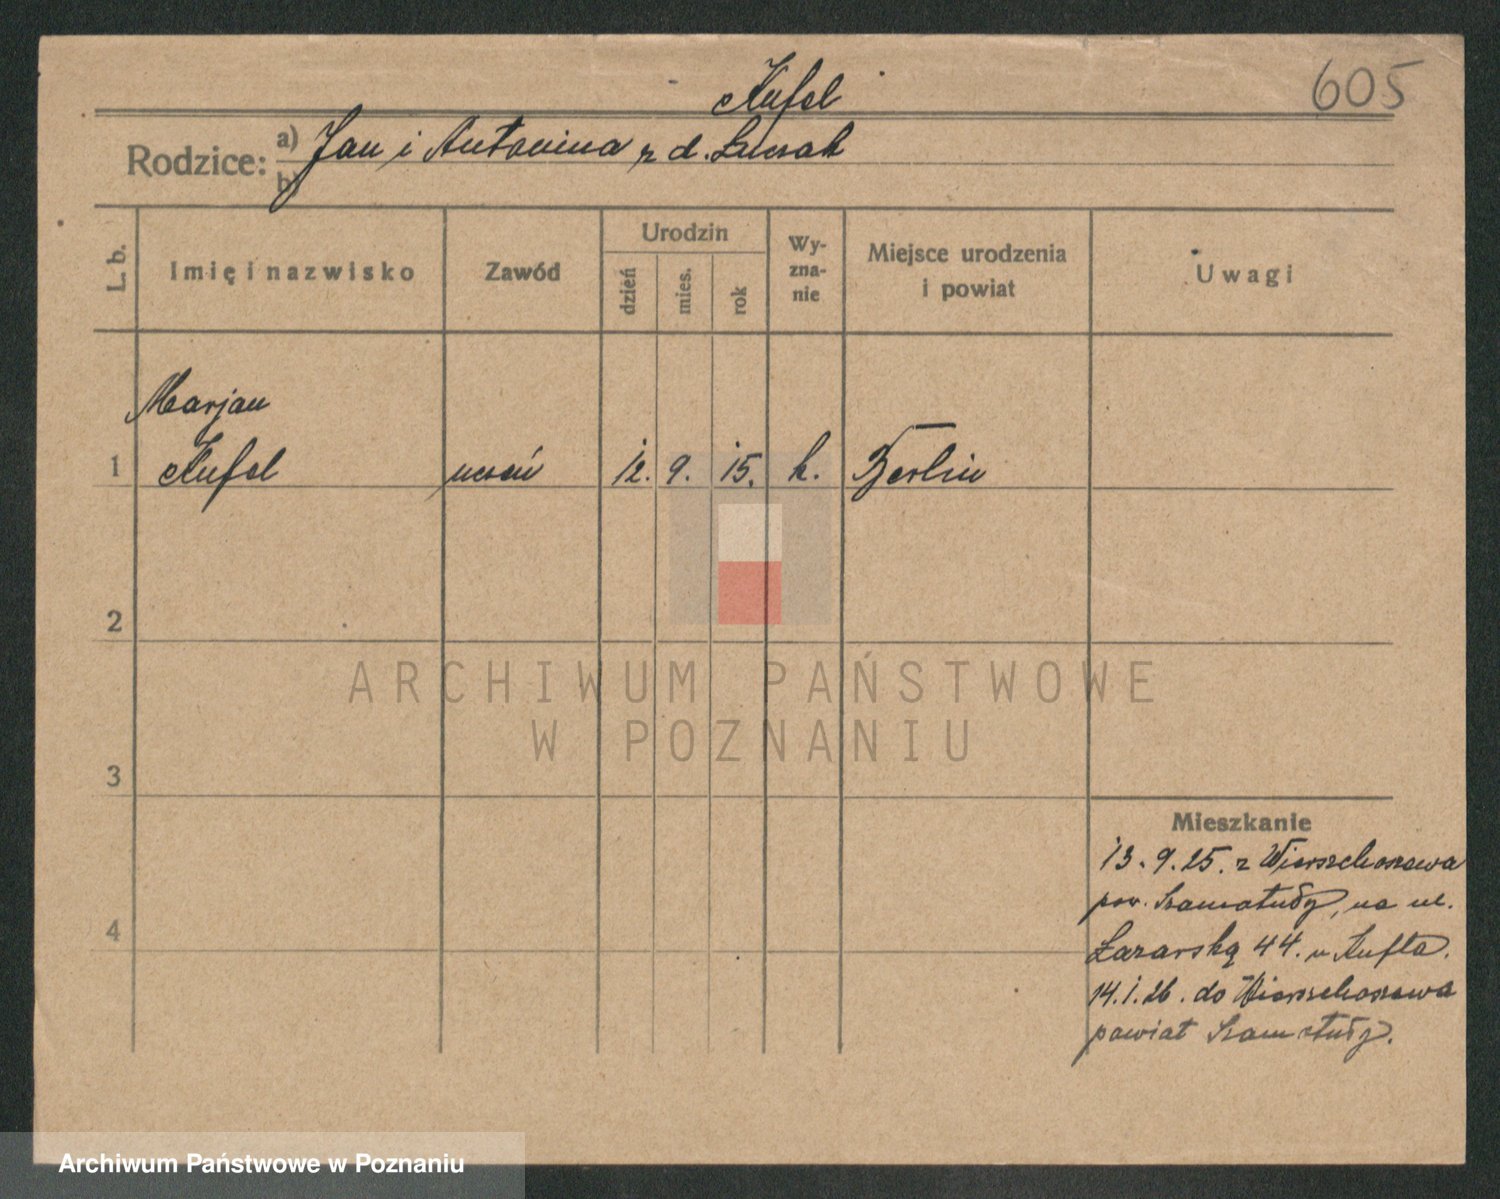 605
Kufel
Rodzice: a) Jan i Antonina z d. Łuczak
b)
L. b.
Imię i nazwisko
Zawód
Urodzin
dzień
mies.
rok
Wy-
zna-
nie
Miejsce urodzenia
i powiat
Uwagi
Marjan
1 Kufel uczeń 12. 9. 15. k. Berlin
2
3
4
Mieszkanie
13.9.25. z Wierzchoczewa
pow. Szamotuły, na ul.
Łazarską 44. u Kufla.
14.1.26. do Wierzchoczewa
powiat Szamotuły.
ARCHIWUM PAŃSTWOWE
W POZNANIU
Archiwum Państwowe w Poznaniu